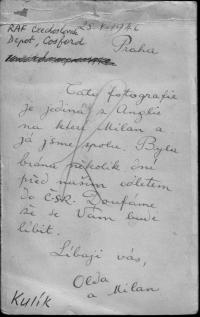 RAF Czechoslovak
Depot, Cosford
Praha
Tato fotografie
je jediná z Anglie
na které Milan a
já jsme spolu. Byla
brána několik dní
před naším odletem
do ČSR. Doufáme
že se Vám bude
líbit.
Líbají vás,
Olda
a Milan
Kulík